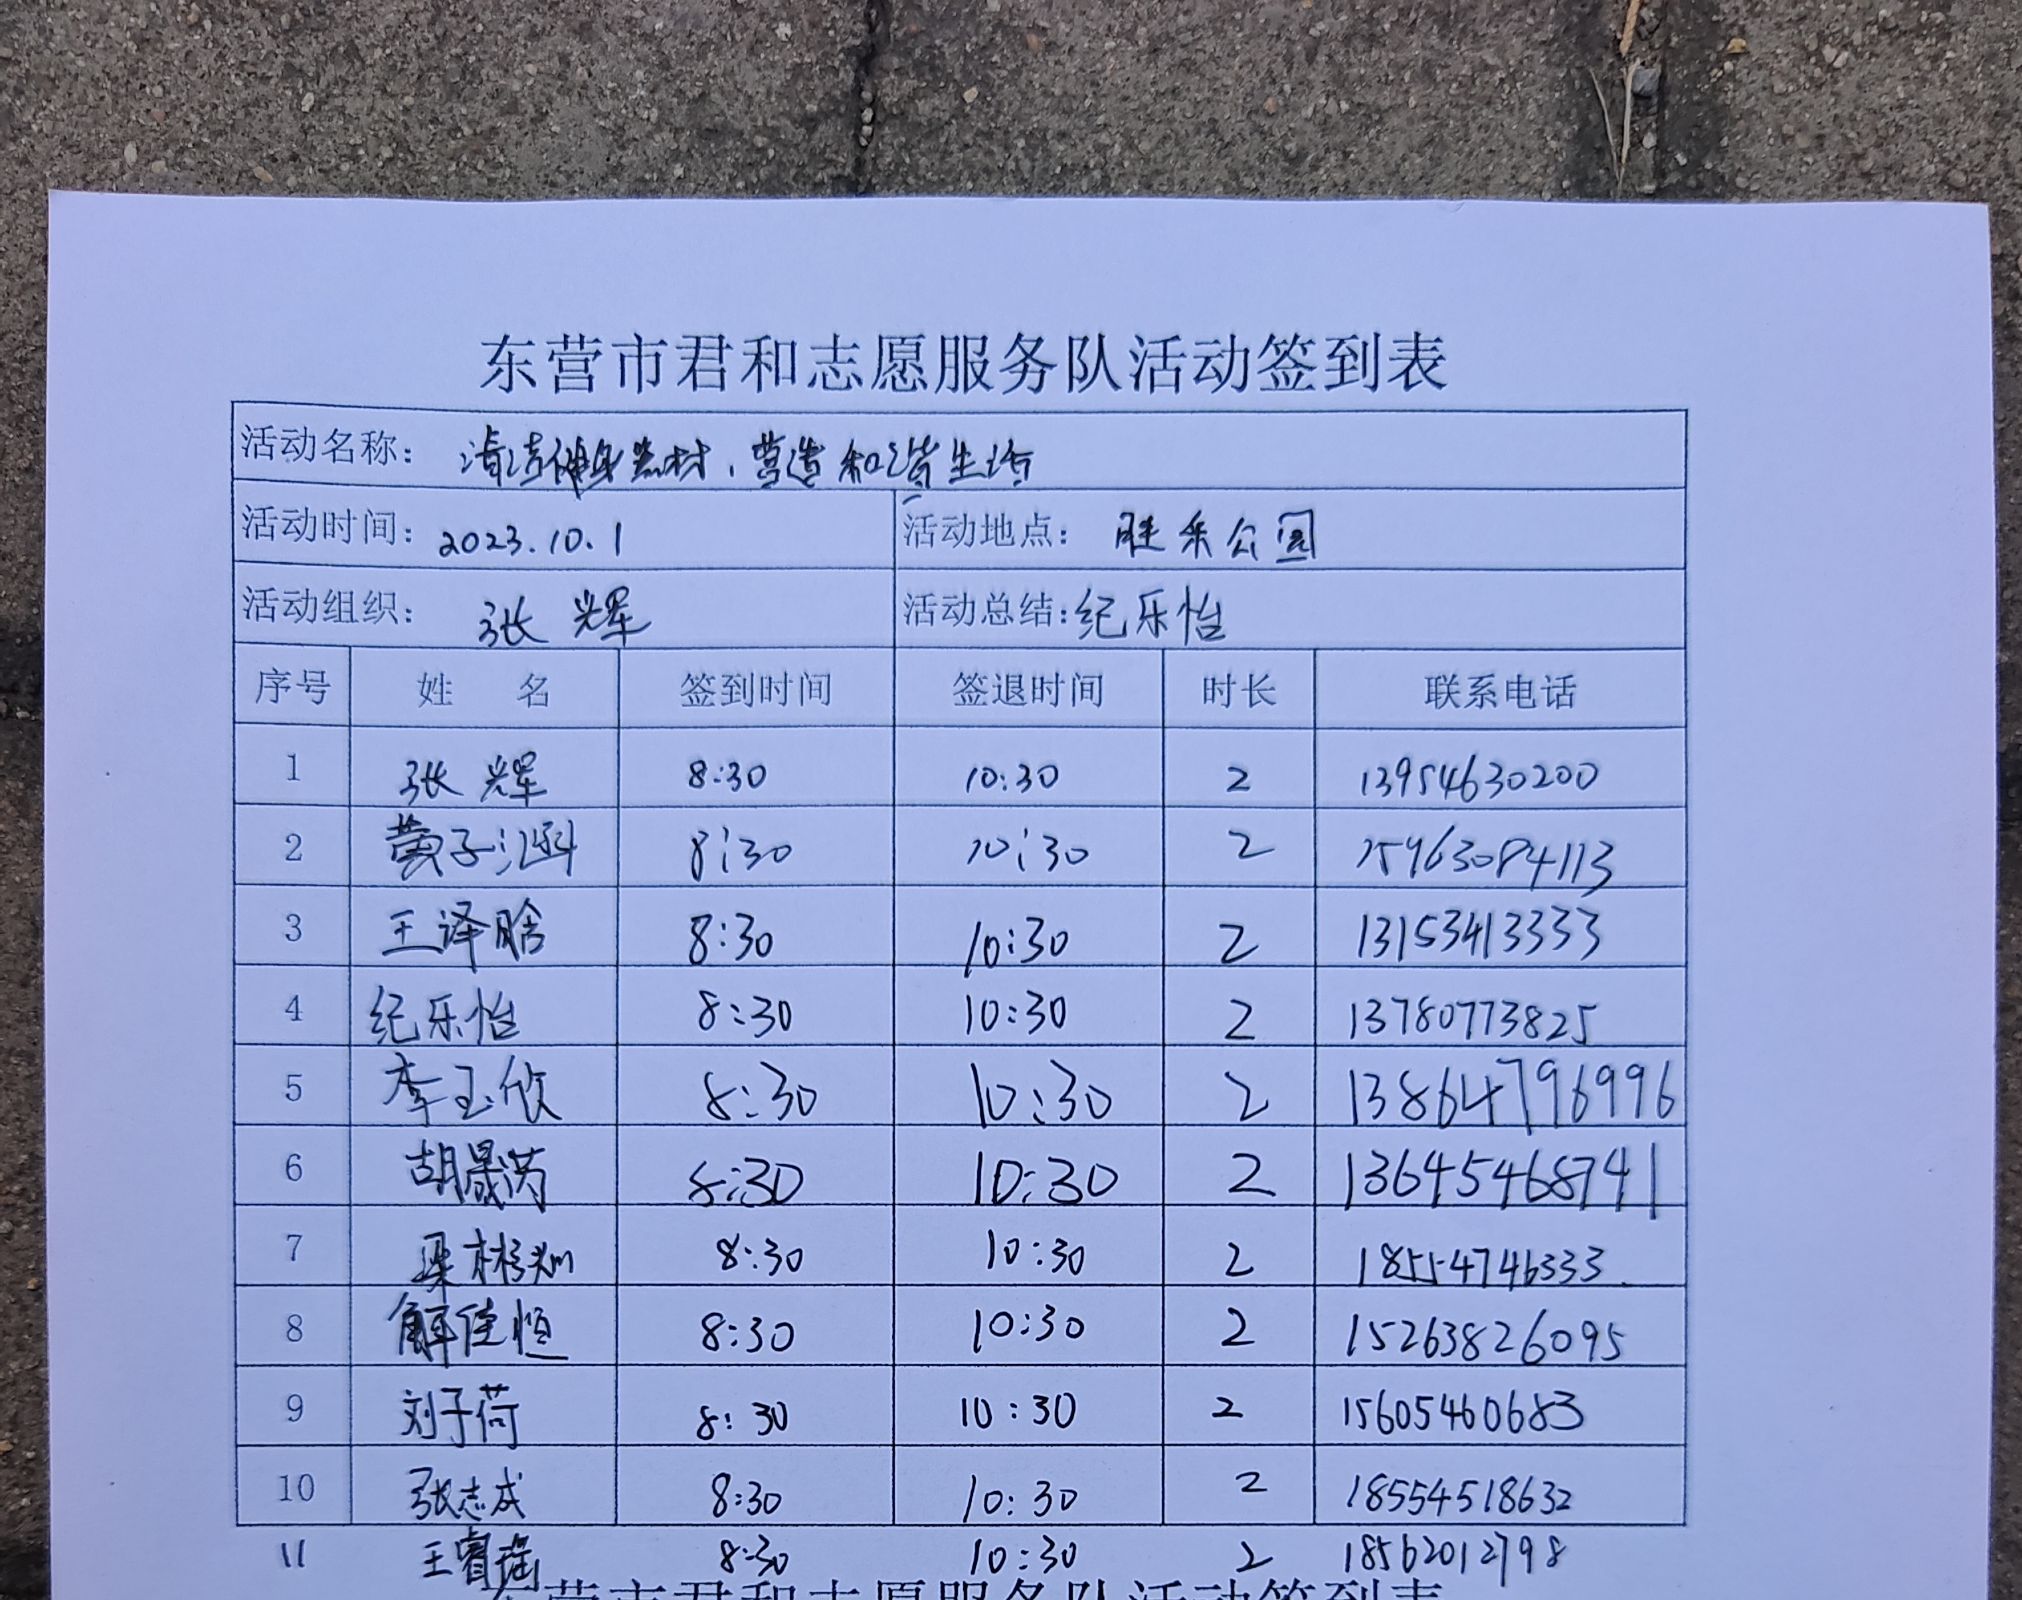 东营市君和志愿服务队活动签到表
活动名称： 清洁健身器材，营造和谐生活
活动时间：2023.10.1 活动地点： 胜采公园
活动组织： 张辉 活动总结：纪乐怡
序号 姓 名 签到时间 签退时间 时长 联系电话
1 张辉 8:30 10:30 2 13954630200
2 黄子涵 8:30 10:30 2 15963084113
3 王译晗 8:30 10:30 2 13153413333
4 纪乐怡 8:30 10:30 2 13780773825
5 李玉欣 8:30 10:30 2 13864796996
6 胡晟芮 8:30 10:30 2 13645468741
7 梁彬灿 8:30 10:30 2 18554746333
8 解佳恒 8:30 10:30 2 15263826095
9 刘子荷 8:30 10:30 2 15605460683
10 张志成 8:30 10:30 2 18554518632
11 王睿瑶 8:30 10:30 2 18562012798
东营市君和志愿服务队活动签到表